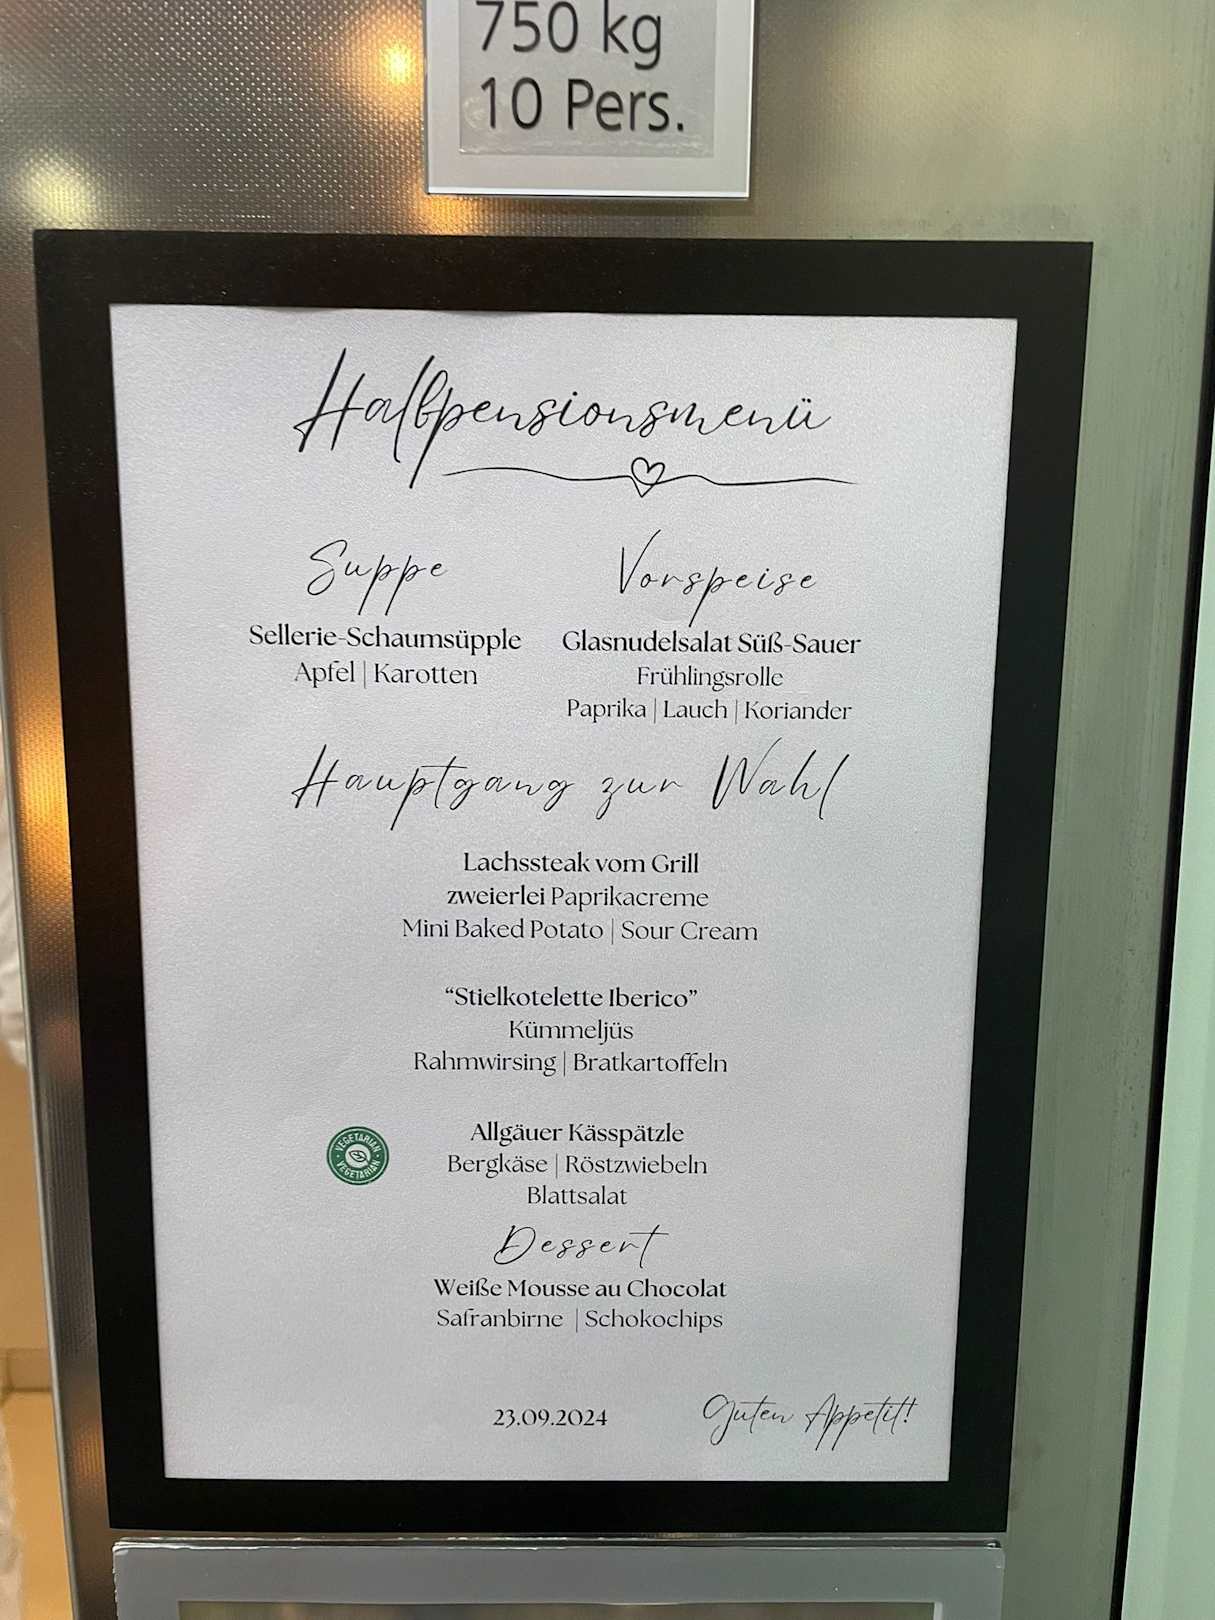 750 kg
10 Pers.
Halbpensionsmenü
Suppe
Sellerie-Schaumsüpple
Apfel | Karotten
Vorspeise
Glasnudelsalat Süß-Sauer
Frühlingsrolle
Paprika | Lauch | Koriander
Hauptgang zur Wahl
Lachssteak vom Grill
zweierlei Paprikacreme
Mini Baked Potato | Sour Cream
“Stielkotelette Iberico”
Kümmeljüs
Rahmwirsing | Bratkartoffeln
VEGETARIAN
VEGETARIAN
Allgäuer Kässpätzle
Bergkäse | Röstzwiebeln
Blattsalat
Dessert
Weiße Mousse au Chocolat
Safranbirne | Schokochips
23.09.2024
Guten Appetit!